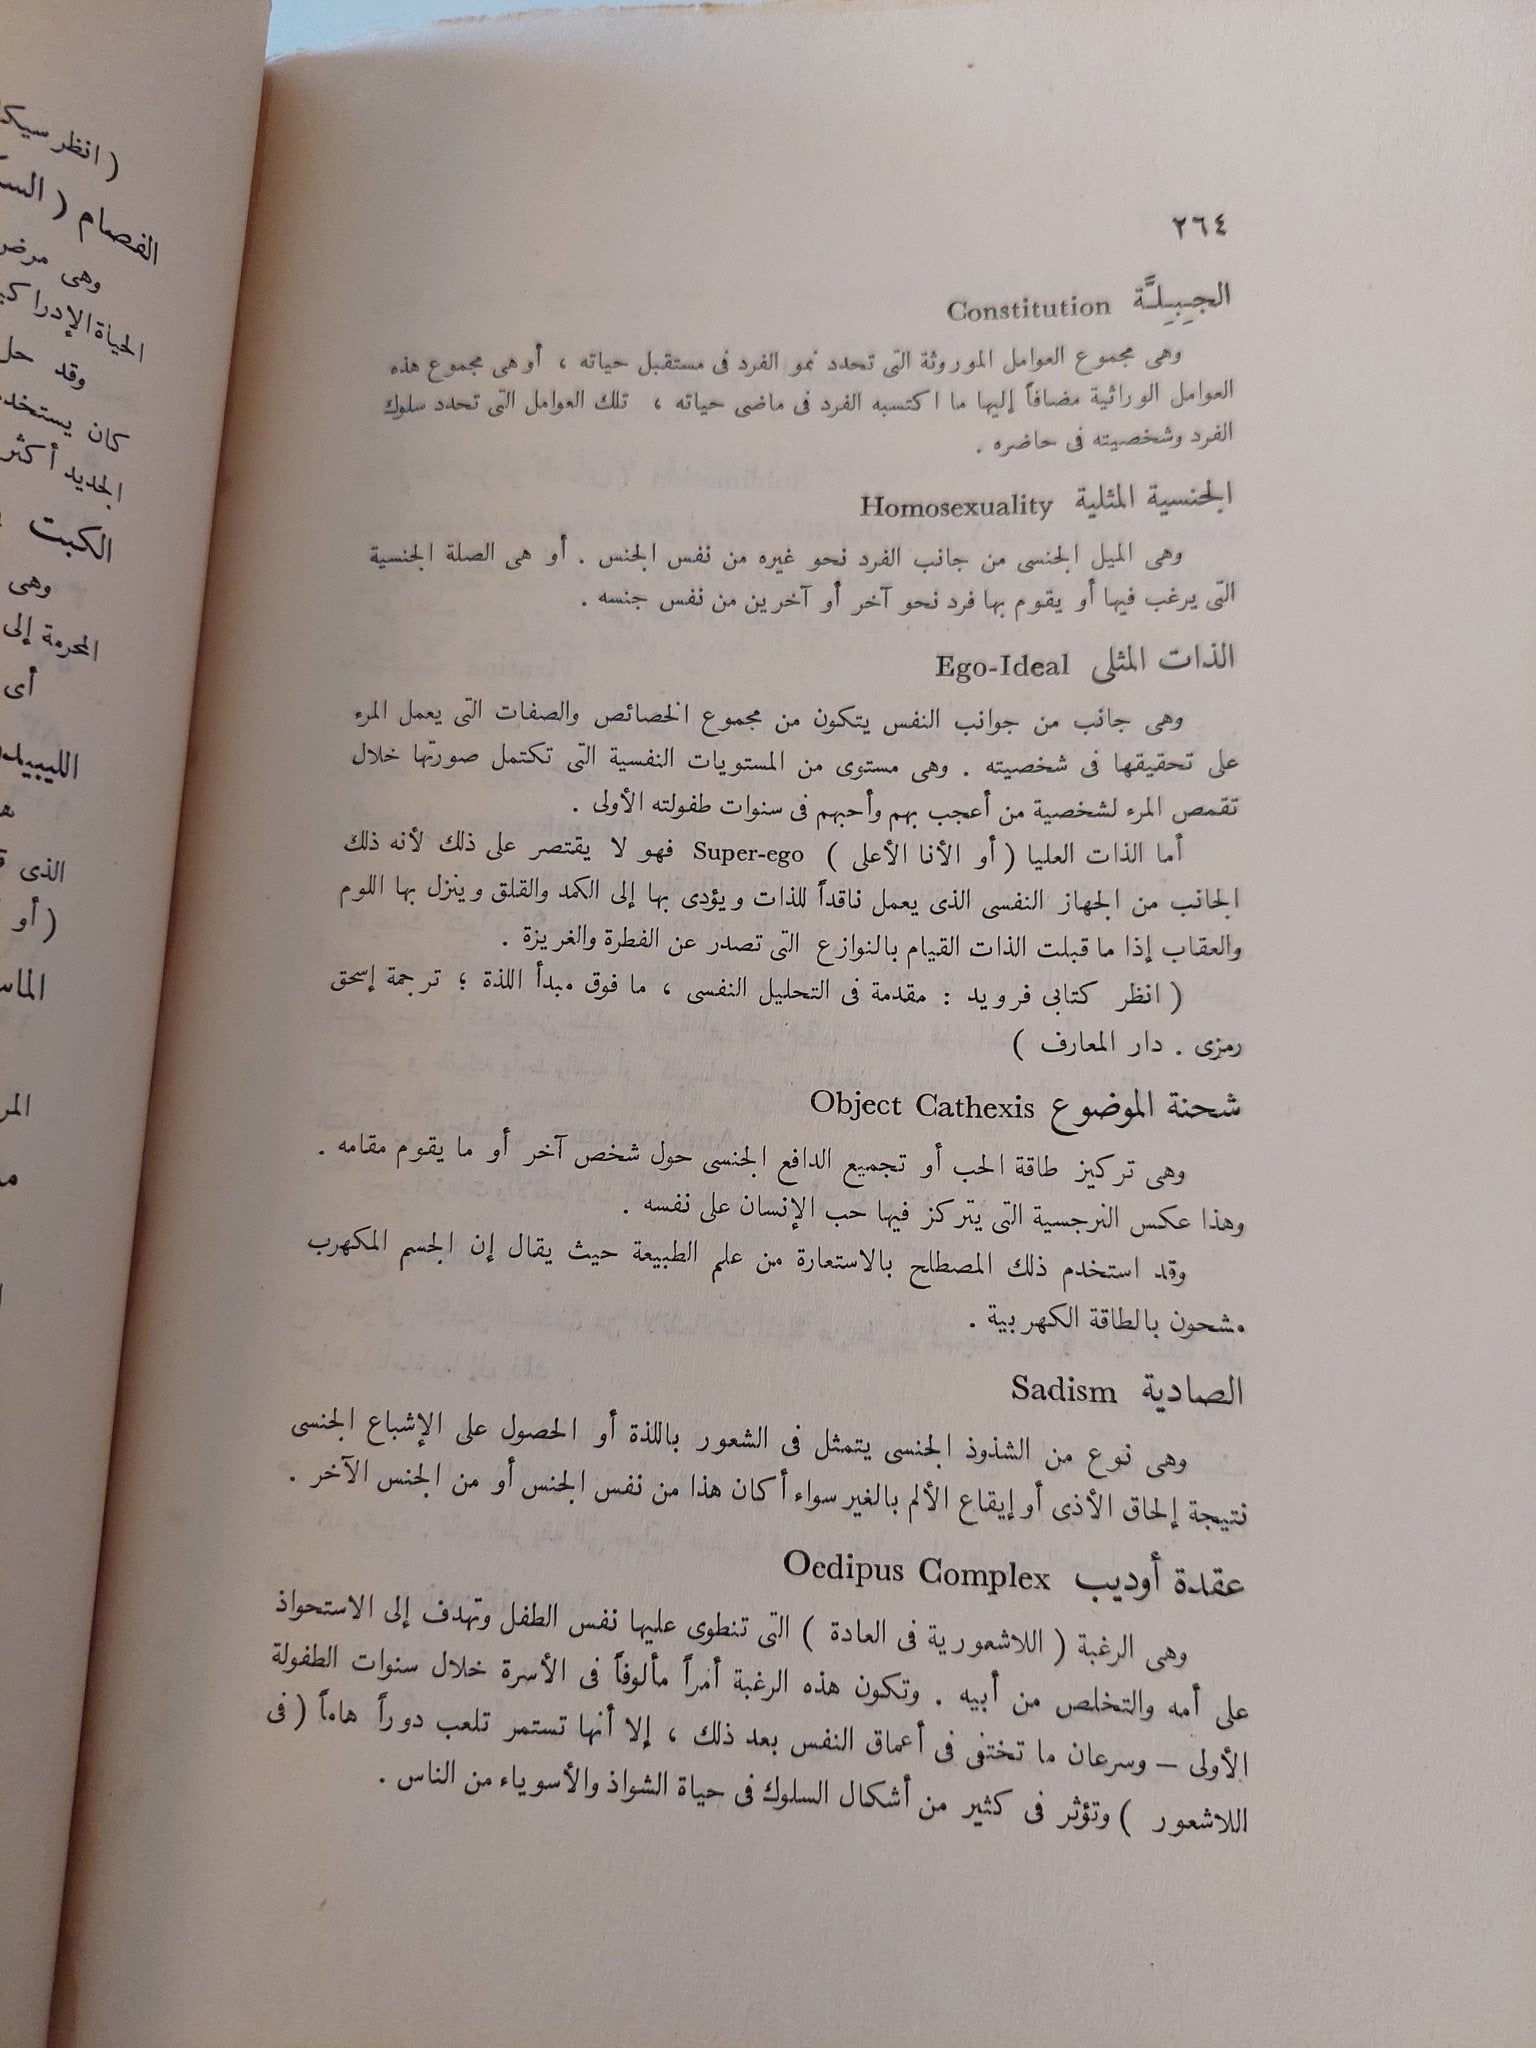 ٢٦٤
الجِبِلَّة Constitution
وهى مجموع العوامل الموروثة التى تحدد نمو الفرد فى مستقبل حياته ، أو هى مجموع هذه
العوامل الوراثية مضافاً إليها ما اكتسبه الفرد فى ماضى حياته ، تلك العوامل التى تحدد سلوك
الفرد وشخصيته فى حاضره .
الجنسية المثلية Homosexuality
وهى الميل الجنسى من جانب الفرد نحو غيره من نفس الجنس . أو هى الصلة الجنسية
التى يرغب فيها أو يقوم بها فرد نحو آخر أو آخرين من نفس جنسه .
الذات المثلى Ego-Ideal
وهى جانب من جوانب النفس يتكون من مجموع الخصائص والصفات التى يعمل المرء
على تحقيقها فى شخصيته . وهى مستوى من المستويات النفسية التى تكتمل صورتها خلال
تقمص المرء لشخصية من أعجب بهم وأحبهم فى سنوات طفولته الأولى .
أما الذات العليا ( أو الأنا الأعلى ) Super-ego فهو لا يقتصر على ذلك لأنه ذلك
الجانب من الجهاز النفسى الذى يعمل ناقداً للذات ويؤدى بها إلى الكمد والقلق وينزل بها اللوم
والعقاب إذا ما قبلت الذات القيام بالنوازع التى تصدر عن الفطرة والغريزة .
( انظر كتابى فرويد : مقدمة فى التحليل النفسى ، ما فوق مبدأ اللذة ؛ ترجمة إسحق
رمزى . دار المعارف )
شحنة الموضوع Object Cathexis
وهى تركيز طاقة الحب أو تجميع الدافع الجنسى حول شخص آخر أو ما يقوم مقامه .
وهذا عكس النرجسية التى يتركز فيها حب الإنسان على نفسه .
وقد استخدم ذلك المصطلح بالاستعارة من علم الطبيعة حيث يقال إن الجسم المكهرب
مشحون بالطاقة الكهربية .
الصادية Sadism
وهى نوع من الشذوذ الجنسى يتمثل فى الشعور باللذة أو الحصول على الإشباع الجنسى
نتيجة إلحاق الأذى أو إيقاع الألم بالغير سواء أكان هذا من نفس الجنس أو من الجنس الآخر .
عقدة أوديب Oedipus Complex
وهى الرغبة ( اللاشعورية فى العادة ) التى تنطوى عليها نفس الطفل وتهدف إلى الاستحواذ
على أمه والتخلص من أبيه . وتكون هذه الرغبة أمراً مألوفاً فى الأسرة خلال سنوات الطفولة
الأولى – وسرعان ما تختفى فى أعماق النفس بعد ذلك ، إلا أنها تستمر تلعب دوراً هاماً ( فى
اللاشعور ) وتؤثر فى كثير من أشكال السلوك فى حياة الشواذ والأسوياء من الناس .
( انظر
الفصام (
وهى
وقد حل
الجديد أكثر
الكبت
وهى
المحرمة إلى
أى
الذى
( أو